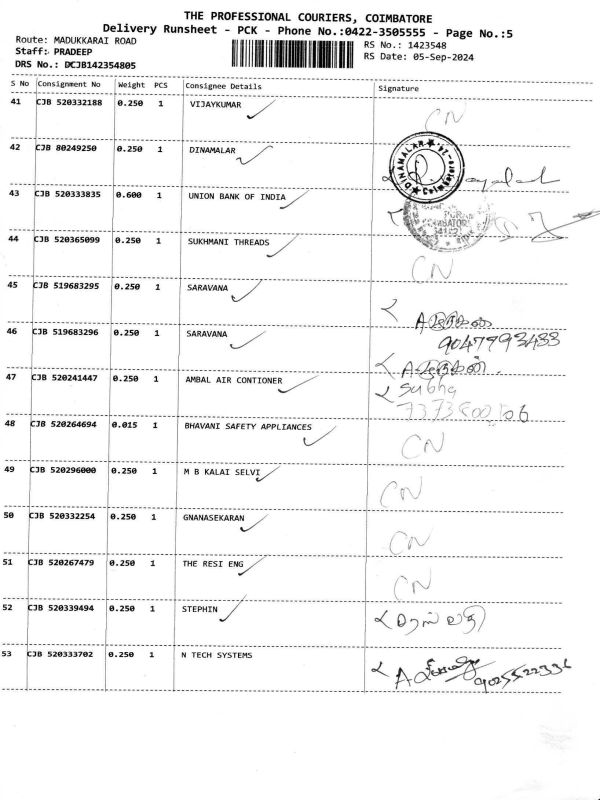 THE PROFESSIONAL COURIERS, COIMBATORE
Delivery Runsheet - PCK - Phone No.:0422-3505555 - Page No.:5
Route: MADUKKARAI ROAD
RS No.: 1423548
Staff: PRADEEP
RS Date: 05-Sep-2024
DRS No.: DCJB142354805
S No Consignment No Weight PCS Consignee Details Signature
41 CJB 520332188 0.250 1 VIJAYKUMAR CN
42 CJB 80249250 0.250 1 DINAMALAR
DINAMALAR Coimbatore
43 CJB 520333835 0.600 1 UNION BANK OF INDIA
COIMBATORE
44 CJB 520365099 0.250 1 SUKHMANI THREADS CN
45 CJB 519683295 0.250 1 SARAVANA
9047993433
46 CJB 519683296 0.250 1 SARAVANA
47 CJB 520241447 0.250 1 AMBAL AIR CONTIONER Subha
48 CJB 520264694 0.015 1 BHAVANI SAFETY APPLIANCES CN
49 CJB 520296000 0.250 1 M B KALAI SELVI CN
50 CJB 520332254 0.250 1 GNANASEKARAN CN
51 CJB 520267479 0.250 1 THE RESI ENG CN
52 CJB 520339494 0.250 1 STEPHIN
53 CJB 520333702 0.250 1 N TECH SYSTEMS 9025522336